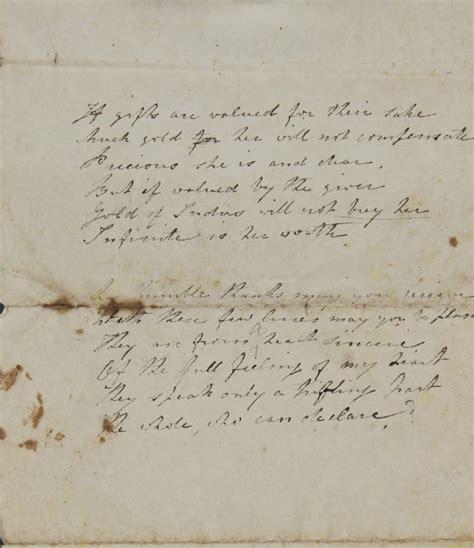 If gifts are valued for their sake
Much gold for her will not compensate
Precious she is and dear,
But if valued by the giver
Gold of Indus will not buy her
Infinite is her worth.
humble thanks may you receive
With these few lines may you be pleas
They are from a heart sincere
Of the full feeling of my heart
They speak only a trifling part
The whole, who can declare?